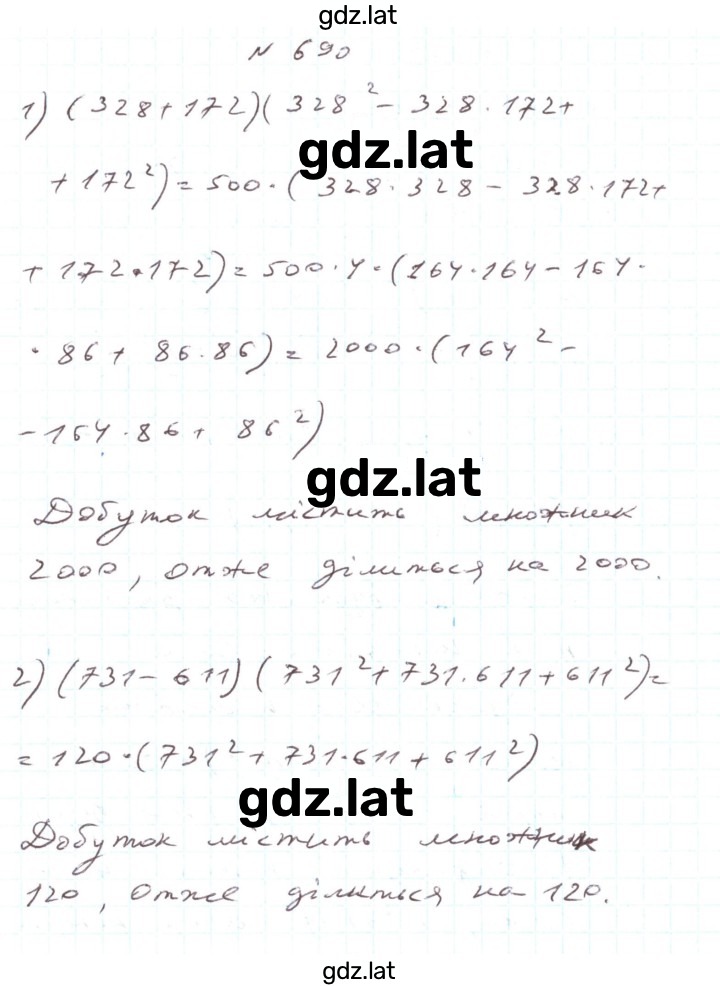 gdz.lat
N 690
1) (328+172)(328² - 328·172+
gdz.lat
+172²) = 500·(328·328 - 328·172+
+172·172) = 500·4·(164·164-164·
·86+ 86·86) = 2000·(164² -
-164·86+ 86²)
gdz.lat
Добуток містить множник
2000, отже ділиться на 2000.
2) (731-611)(731²+731·611+611²)=
= 120·(731²+731·611+611²)
gdz.lat
Добуток містить множник
120, отже ділиться на 120.
gdz.lat